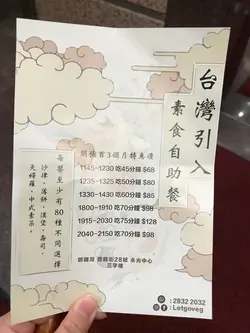 台灣引入
素食自助餐
開張首3個月特惠價
1145-1230 吃45分鐘 $68
1235-1325 吃50分鐘 $80
1330-1430 吃60分鐘 $85
1800-1910 吃70分鐘 $98
1915-2030 吃75分鐘 $128
2040-2150 吃70分鐘 $98
銅鑼灣 登龍街28號 永光中心
三字樓
每餐至少有80種不同選擇
沙律，薄餅，漢堡，壽司，
天婦羅，中式素菜。
: 2832 2032
: Letgoveg